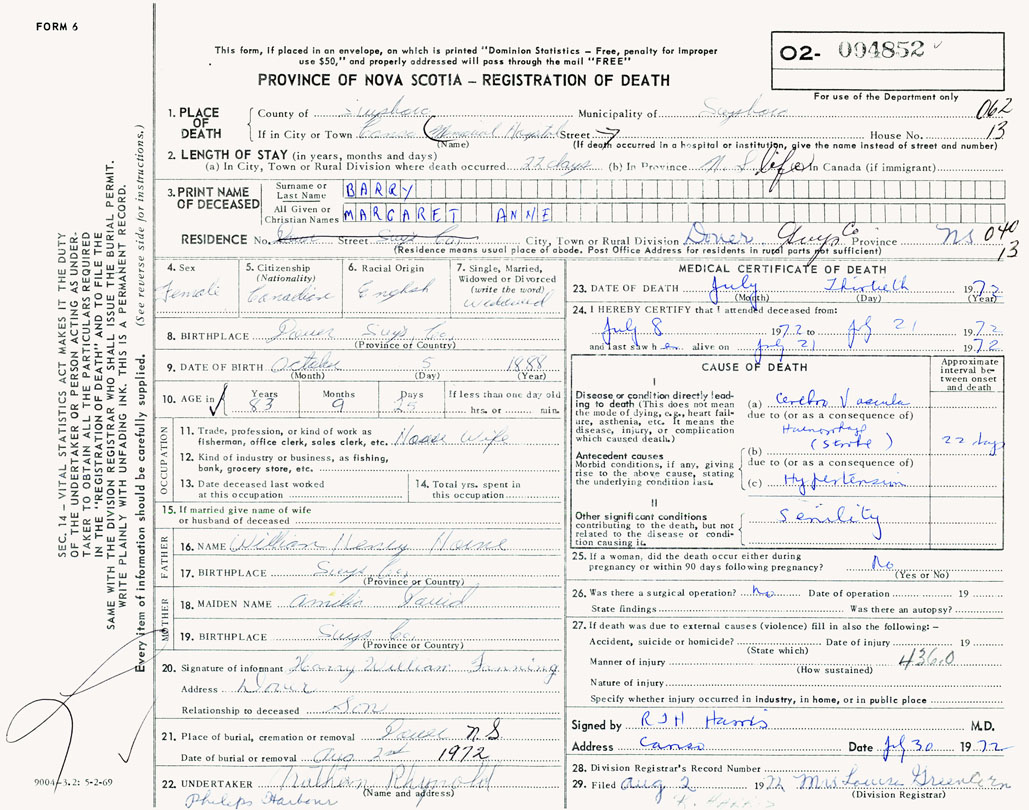 FORM 6
This form, if placed in an envelope, on which is printed "Dominion Statistics – Free, penalty for improper
use $50," and properly addressed will pass through the mail "FREE"
PROVINCE OF NOVA SCOTIA – REGISTRATION OF DEATH
02- 004852
For use of the Department only
1. PLACE OF DEATH
County of Guysboro Municipality of Guysboro 062
If in City or Town Canso (Memorial Hospital Street House No. 13
(Name) (If death occurred in a hospital or institution, give the name instead of street and number)
2. LENGTH OF STAY (in years, months and days)
(a) In City, Town or Rural Division where death occurred 22 days (b) In Province N.S. life In Canada (if immigrant)
3. PRINT NAME OF DECEASED
Surname or Last Name BARRY
All Given or Christian Names MARGARET ANNE
RESIDENCE No. Street Guys Co. City, Town or Rural Division Dover, Guys Co Province NS 040
(Residence means usual place of abode. Post Office Address for residents in rural parts not sufficient) 13
4. Sex
Female
5. Citizenship
(Nationality)
Canadian
6. Racial Origin
English
7. Single, Married,
Widowed or Divorced
(write the word)
Widowed
8. BIRTHPLACE Dover Guys Co.
(Province or Country)
9. DATE OF BIRTH October 5 1888
(Month) (Day) (Year)
10. AGE in Years Months Days If less than one day old
83 9 25 hrs. or min.
OCCUPATION
11. Trade, profession, or kind of work as
fisherman, office clerk, sales clerk, etc. House Wife
12. Kind of industry or business, as fishing,
bank, grocery store, etc.
13. Date deceased last worked
at this occupation
14. Total yrs. spent in
this occupation
15. If married give name of wife
or husband of deceased
FATHER
16. NAME William Henry Horne
17. BIRTHPLACE Guys Co.
(Province or Country)
MOTHER
18. MAIDEN NAME David
19. BIRTHPLACE Guys Co.
(Province or Country)
20. Signature of informant Harry William
Address Dover
Relationship to deceased Son
21. Place of burial, cremation or removal Dover N.S
Date of burial or removal Aug 2nd 1972
22. UNDERTAKER Nathan Rhynold
(Name and address)
Philips Harbour
MEDICAL CERTIFICATE OF DEATH
23. DATE OF DEATH July Thirtieth 1972
(Month) (Day) (Year)
24. I HEREBY CERTIFY that I attended deceased from:
July 8 1972 to Jly 21 1972
and last saw her alive on July 21 1972
CAUSE OF DEATH
Approximate
interval be-
tween onset
and death
I
Disease or condition directly lead-
ing to death (This does not mean
the mode of dying, e.g., heart fail-
ure, asthenia, etc. It means the
disease, injury, or complication
which caused death.)
(a) Cerebro Vascular
due to (or as a consequence of)
Haemorrhage
(Stroke) 22 days
Antecedent causes
Morbid conditions, if any, giving
rise to the above cause, stating
the underlying condition last.
(b)
due to (or as a consequence of)
(c) Hypertension
II
Other significant conditions
contributing to the death, but not
related to the disease or condi-
tion causing it.
Senility
25. If a woman, did the death occur either during
pregnancy or within 90 days following pregnancy? No
(Yes or No)
26. Was there a surgical operation? No Date of operation 19
State findings Was there an autopsy?
27. If death was due to external causes (violence) fill in also the following: –
Accident, suicide or homicide? Date of injury 19
(State which)
Manner of injury 436.0
(How sustained)
Nature of injury
Specify whether injury occurred in industry, in home, or in public place
Signed by R J H Harris M.D.
Address Canso Date Jly 30 1972
28. Division Registrar's Record Number
29. Filed Aug 2 1972 Mrs Louise
(Division Registrar)
SEC. 14 – VITAL STATISTICS ACT MAKES IT THE DUTY
OF THE UNDERTAKER OR PERSON ACTING AS UNDER-
TAKER TO OBTAIN ALL THE PARTICULARS REQUIRED
IN THE "REGISTRATION OF DEATH" AND TO FILE THE
SAME WITH THE DIVISION REGISTRAR WHO SHALL ISSUE THE BURIAL PERMIT.
WRITE PLAINLY WITH UNFADING INK. THIS IS A PERMANENT RECORD.
Every item of information should be carefully supplied. (See reverse side for instructions.)
9004-3.2: 5-2-69